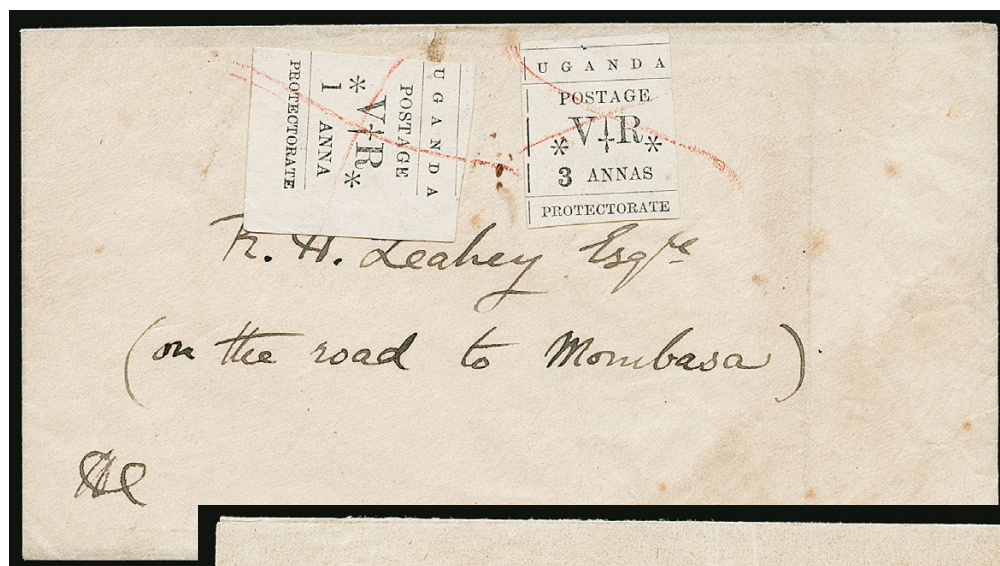 UGANDA
POSTAGE
* V † R *
1 ANNA
PROTECTORATE
UGANDA
POSTAGE
* V † R *
3 ANNAS
PROTECTORATE
R. H. Leahey Esqre
(on the road to Mombasa)